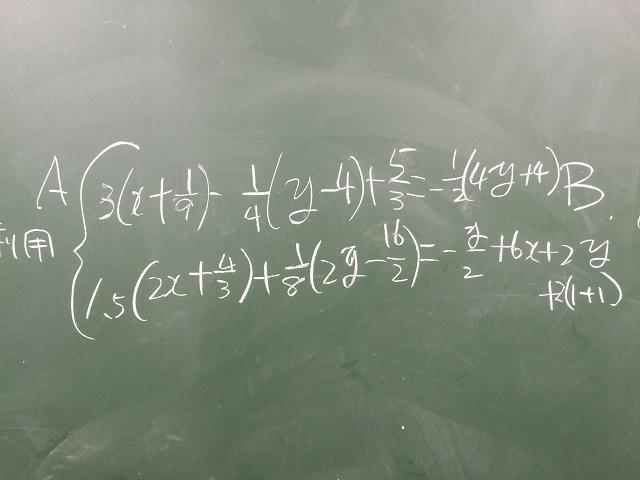 A 3(x+1/9)- 1/4(y-4)+5/3=-1/2(4y+4) B.
利用
1.5(2x+4/3)+1/8(2y-16/2)=-y/2+6x+2y
+2(1+1)